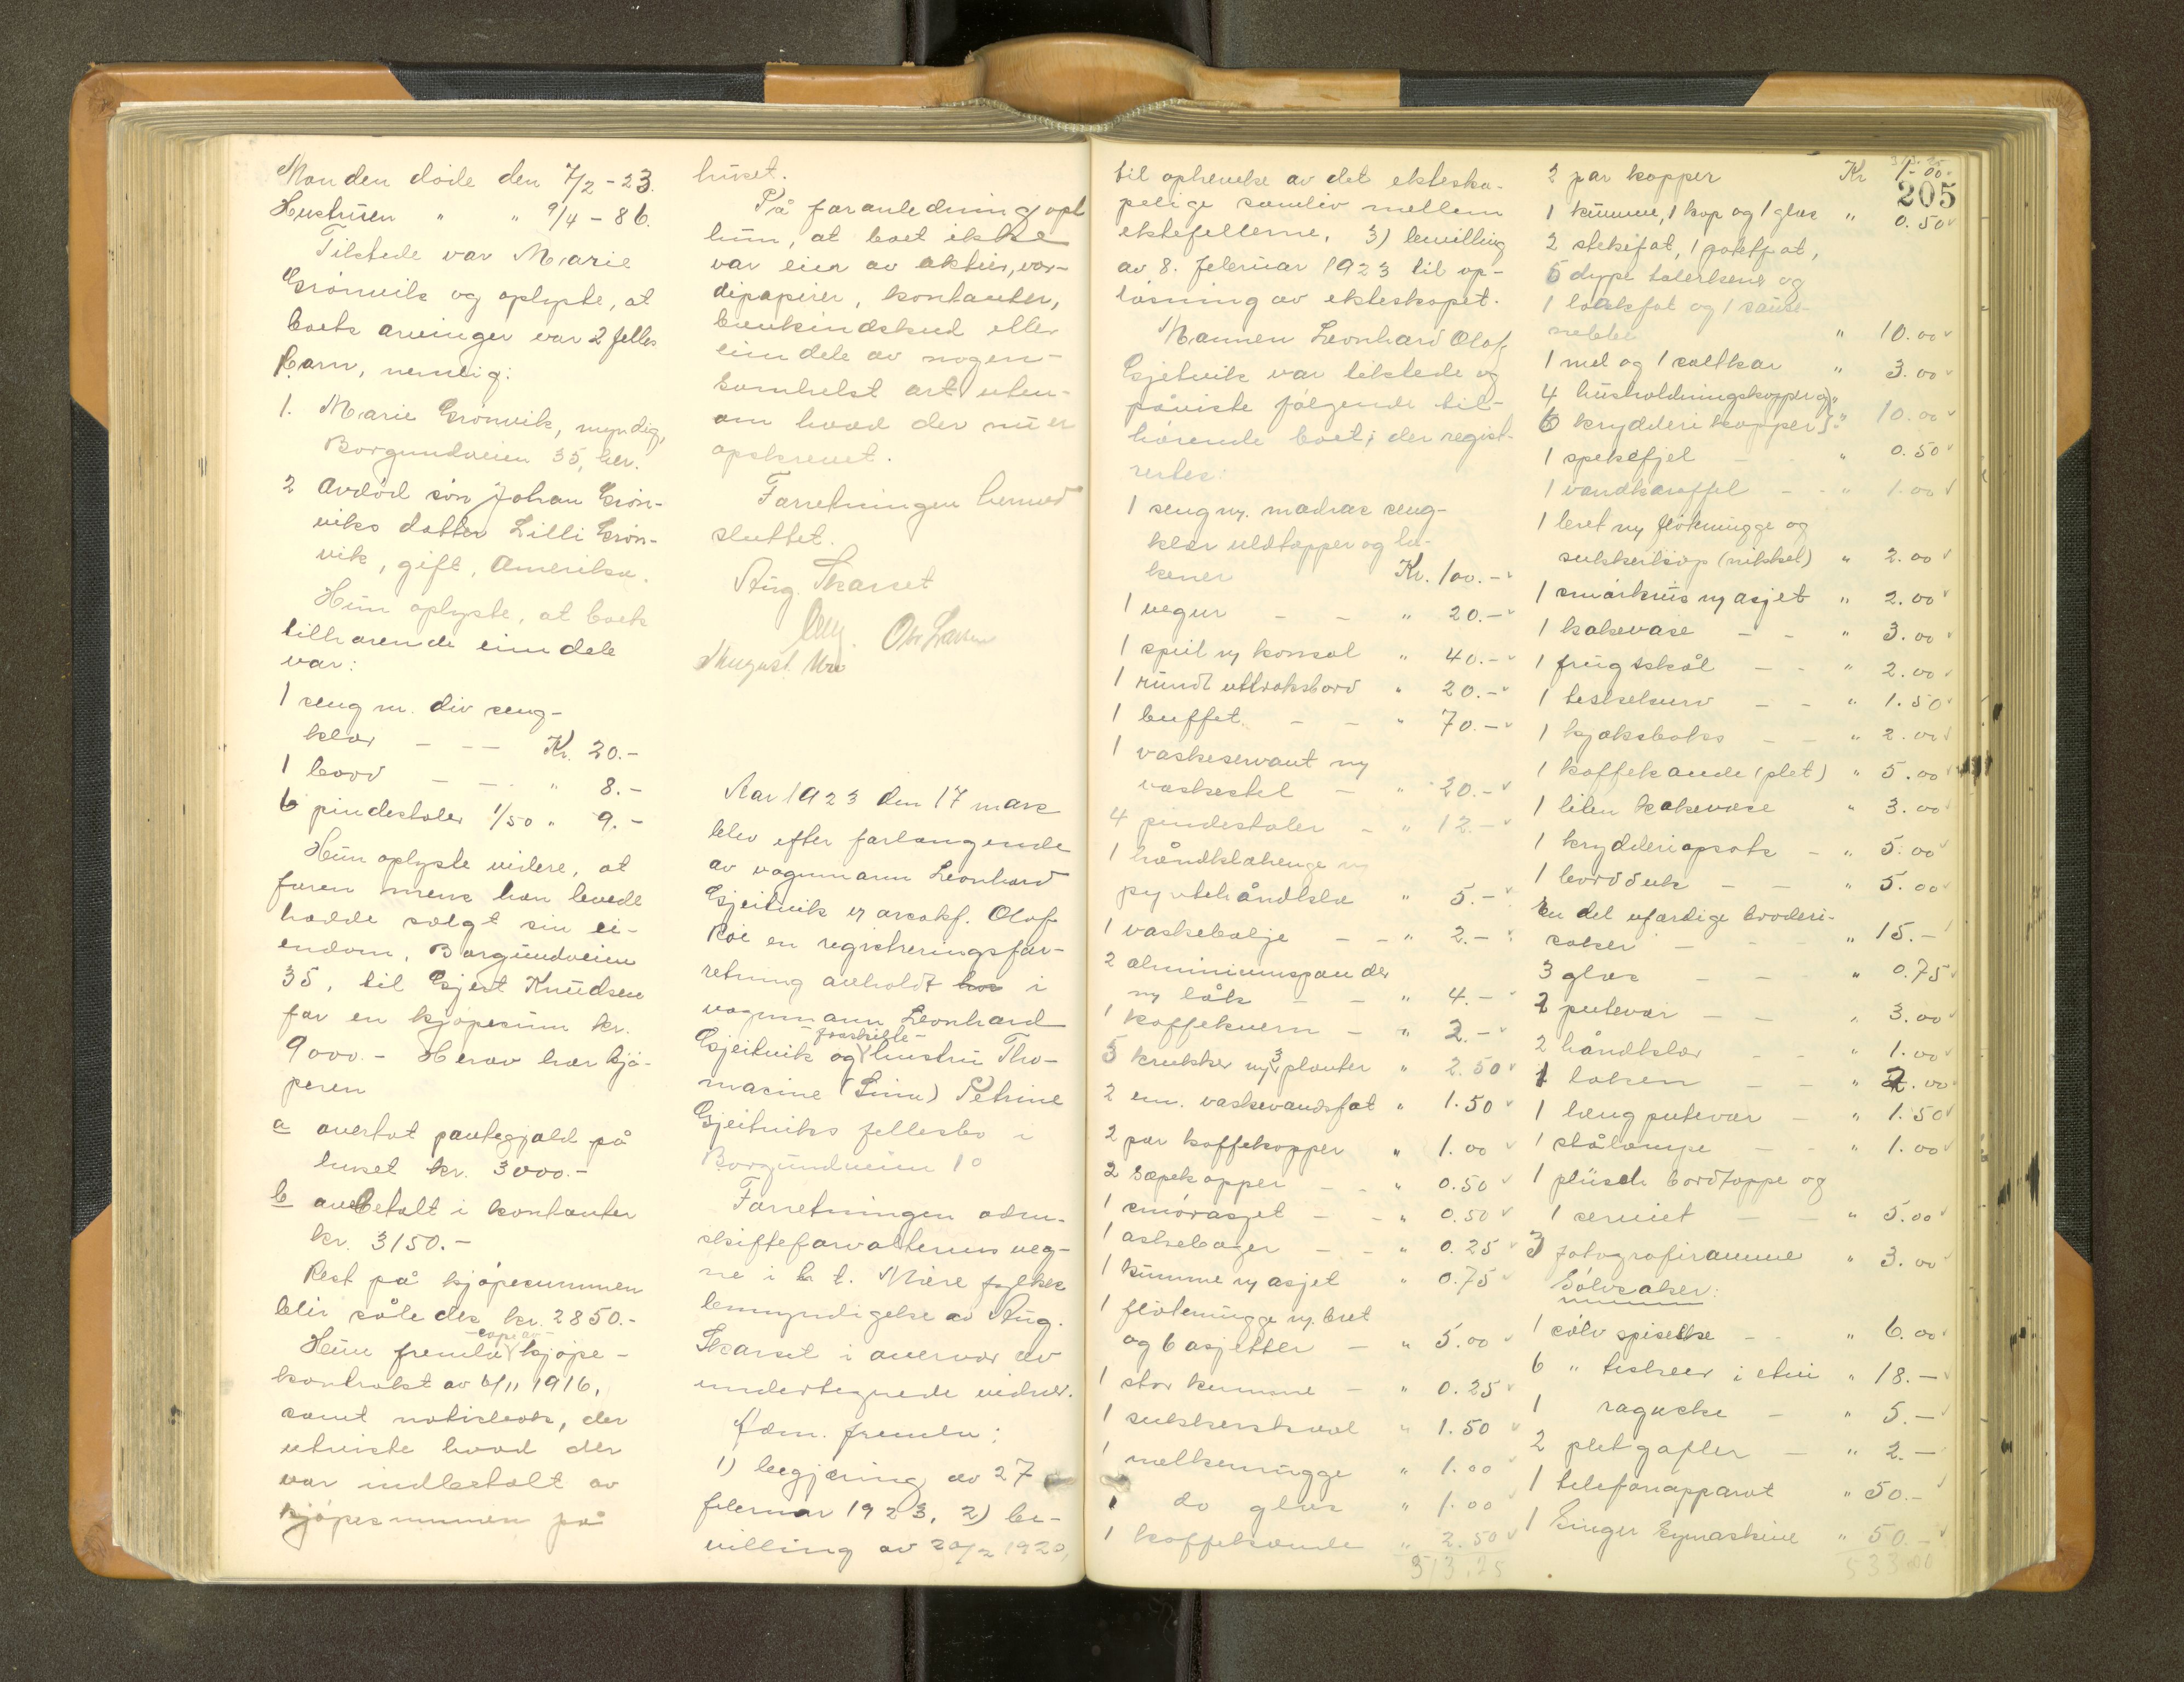 Manden døde den 7/2-23.
Hustruen " " 9/4-86.
Tilstede var Marie
Grønvik og oplyste, at
boets arvinger var 2 felles
barn, nemlig:
1. Marie Grønvik, myndig,
Borgundveien 35, her.
2 Avdød søn Johan Grøn-
viks datter Lilli Grøn-
vik, gift, Amerika.
Hun oplyste, at boets
tilhørende eiendele
var:
1 seng m. div seng-
klær — — Kr. 20.-
1 bord — — " 8.-
6 pindestoler 1/50 " 9.-
Hun oplyste videre, at
faren mens han levede
hadde solgt sin ei-
endom, Borgundveien
35, til Gjert Knudsen
for en kjøpesum kr.
9000.- Herav har kjø-
peren
a overtat pantegjæld på
huset kr. 3000.-
b avbetalt i kontanter
kr. 3150.-
Rest på kjøpesummen
blir således kr. 2850.-
Hun fremla kopi av kjøpe-
kontrakt av 6/11 1916,
samt notisbok, der
utviste hvad der
var indbetalt av
kjøpesummen på
huset.
På foranledning opl
hun, at boet ikke
var eier av aktier, vær-
dipapirer, kontanter,
bankindskud eller
eiendele av nogen-
somhelst art uten-
om hvad der nu er
opskrevet.
Forretningen hermed
sluttet.
Aug. Skarset
August
Aar 1923 den 17 mars
blev efter forlangende
av vognmann Leonhard
Gjeitvik v/ o.r.sakf. Olaf
Roi en registreringsfor-
retning avholdt hos i
vognmann Leonhard
Gjeitvik og fraskilte hustru Tho-
masine (Sina) Petrine
Gjeitviks fellesbo i
Borgundveien 10
Forretningen adm.
skifteforvalterens veg-
ne i h. t. Møre fylkes
bemyndigelse av Aug.
Skarset i overvær av
undertegnede vidner.
Adm. fremla:
1) begjæring av 27
februar 1923, 2) be-
villing av 20/2 1920,
til ophevelse av det ekteska-
pelige samliv mellem
ektefellerne, 3) bevilling
av 8. februar 1923 til op-
løsning av ekteskapet.
Mannen Leonhard Olaf
Gjeitvik var tilstede og
påviste følgende til-
hørende boet; der regist-
rertes:
1 seng m. madras seng-
klær uldtepper og la-
kener Kr. 100.-
1 vegur — — " 20.-
1 speil m konsol " 40.-
1 rundt uttræksbord " 20.-
1 buffet — — " 70.-
1 vaskeservant m
vaskestel — " 20.-
4 pindestoler — " 12.-
1 håndklæhenge m
pyntehåndklæ " 5.-
1 vaskebalje — — " 2.-
2 aluminiumspander
m låk — — " 4.-
1 koffekvern — " 2.-
5 krukker m/ 3 planter " 2.50
2 em. vaskevandsfat " 1.50
2 par koffekopper " 1.00
2 sæpekopper — — " 0.50
1 smørasjet — — " 0.50
1 askebæger — — " 0.25
1 kumme m asjet " 0.75
1 fløtemugge m. bret
og 6 asjetter — " 5.00
1 stor kumme — " 0.25
1 sukkerskaal " 1.50
1 melkemugge " 1.00
1 do glas " 1.00
1 koffekande " 2.50
313.25
313.25
205
2 par kopper Kr 1.00
1 kumme, 1 kop og 1 glas " 0.50
2 stekefat, 1 potetfat,
5 dype talerkener og
1 laksfat og 1 sause-
nebbe " 10.00
1 mel og 1 saltkar " 3.00
4 husholdningskopper og "
6 krydderikopper } " 10.00
1 spekefjel — " 0.50
1 vandkaraffel — — " 1.00
1 bret m fløtemugge og
sukkerkop (nikkel) " 2.00
1 smørkrus m asjet " 2.00
1 kakevase — — " 3.00
1 frugtskål — — " 2.00
1 teskekurv — — " 1.50
1 kjeksboks — — " 2.00
1 koffekande (plet) " 5.00
1 liten kakevase " 3.00
1 krydderiopsats — " 5.00
1 bordduk — — " 5.00
En del uferdige broderi-
saker — — " 15.-
3 glas — — " 0.75
2 putevar — — " 3.00
2 håndklær — — " 1.00
1 laken — — " 2.00
1 lengputevar — " 1.50
1 stålampe — — " 1.00
1 plüsch bordteppe og
1 serviet — — " 5.00
3 fotografiramme " 3.00
Sølvsaker:
1 sølv spiseske — " 6.00
6 " teskeer i etui " 18.-
1 raguske — " 5.-
2 pletgafler — " 2.-
1 telefonapparat " 50.-
1 Singer symaskine " 50.-
533.00